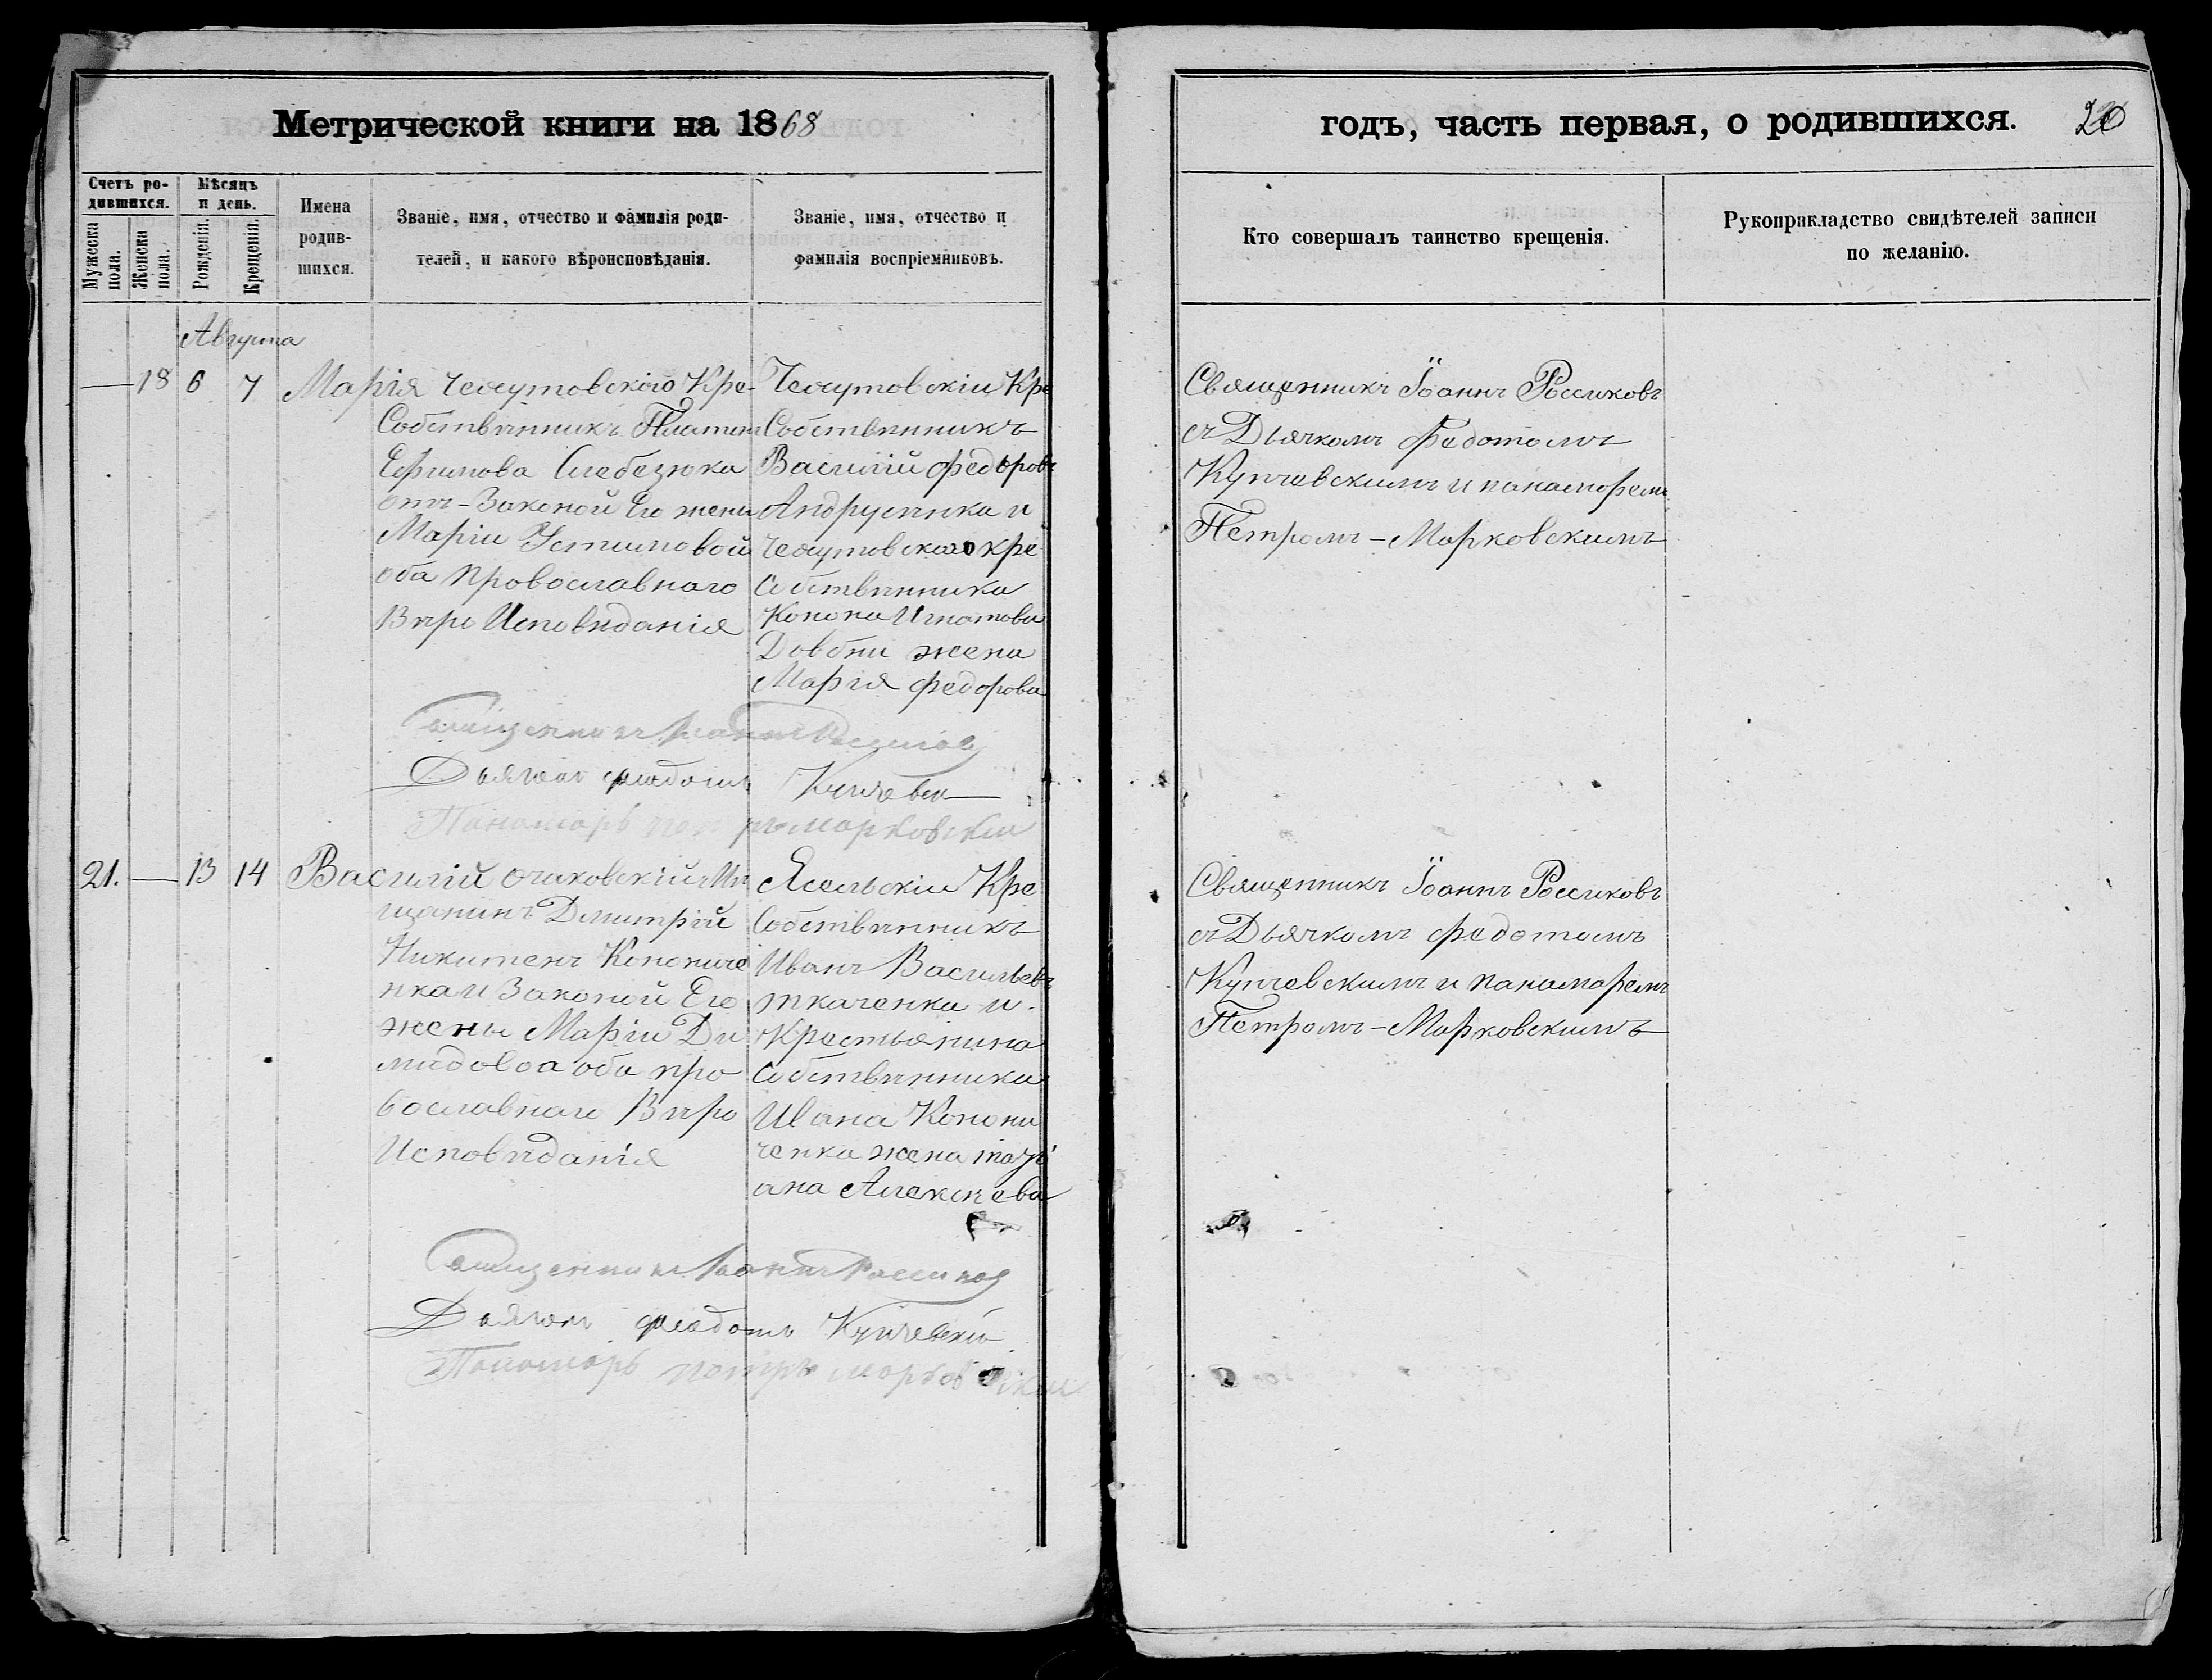 Метрической книги на 1868
годъ, часть первая, о родившихся.
20
Счетъ ро-
дившихся.
Мѣсяцъ
и день.
Мужеска
пола.
Женска
пола.
Рожденія.
Крещенія.
Имена
родив-
шихся.
Званіе, имя, отчество и фамилія роди-
телей, и какого вѣроисповѣданія.
Званіе, имя, отчество и
фамилія воспріемниковъ.
Кто совершалъ таинство крещенія.
Рукоприкладство свидѣтелей записи
по желанію.
Августа
18 6 7 Марія
Кре-
Собственникъ
Ефимова
отъ-Законой Его жены
Маріи Устимовой
оба Провославнаго
Вѣро Исповѣданія
Кре
Собственникъ
Василій Федоровъ
и
кре
Собственника
Конона Игнатова
Довбни жена
Марія Федорова
Священникъ Іоаннъ Россиковъ
съ Дьячкомъ Федотомъ
Купчевскимъ и панамаремъ
Петромъ-Марковскимъ
Священникъ Іоаннъ Россиковъ
Дьячокъ Федотъ
Панамарь Петръ Марковскій
21. 13 14 Василій
Очаковскій Мѣ
щанинъ Дмитрій
Конониче
нка и Законой Его
жены Маріи Ди
мидовоа оба про
вославнаго Вѣро
Исповѣданія
Кре
Собственникъ
Иванъ Васильевъ
ткаченка и
Крестьянина
Собственника
Ивана Конони
ченка жена
Алексѣева
Священникъ Іоаннъ Россиковъ
съ Дьячкомъ Федотомъ
Купчевскимъ и панамаремъ
Петромъ-Марковскимъ
Священникъ Іоаннъ Россиковъ
Дьячокъ Федотъ Купчевскій
Панамарь Петръ Марковскій